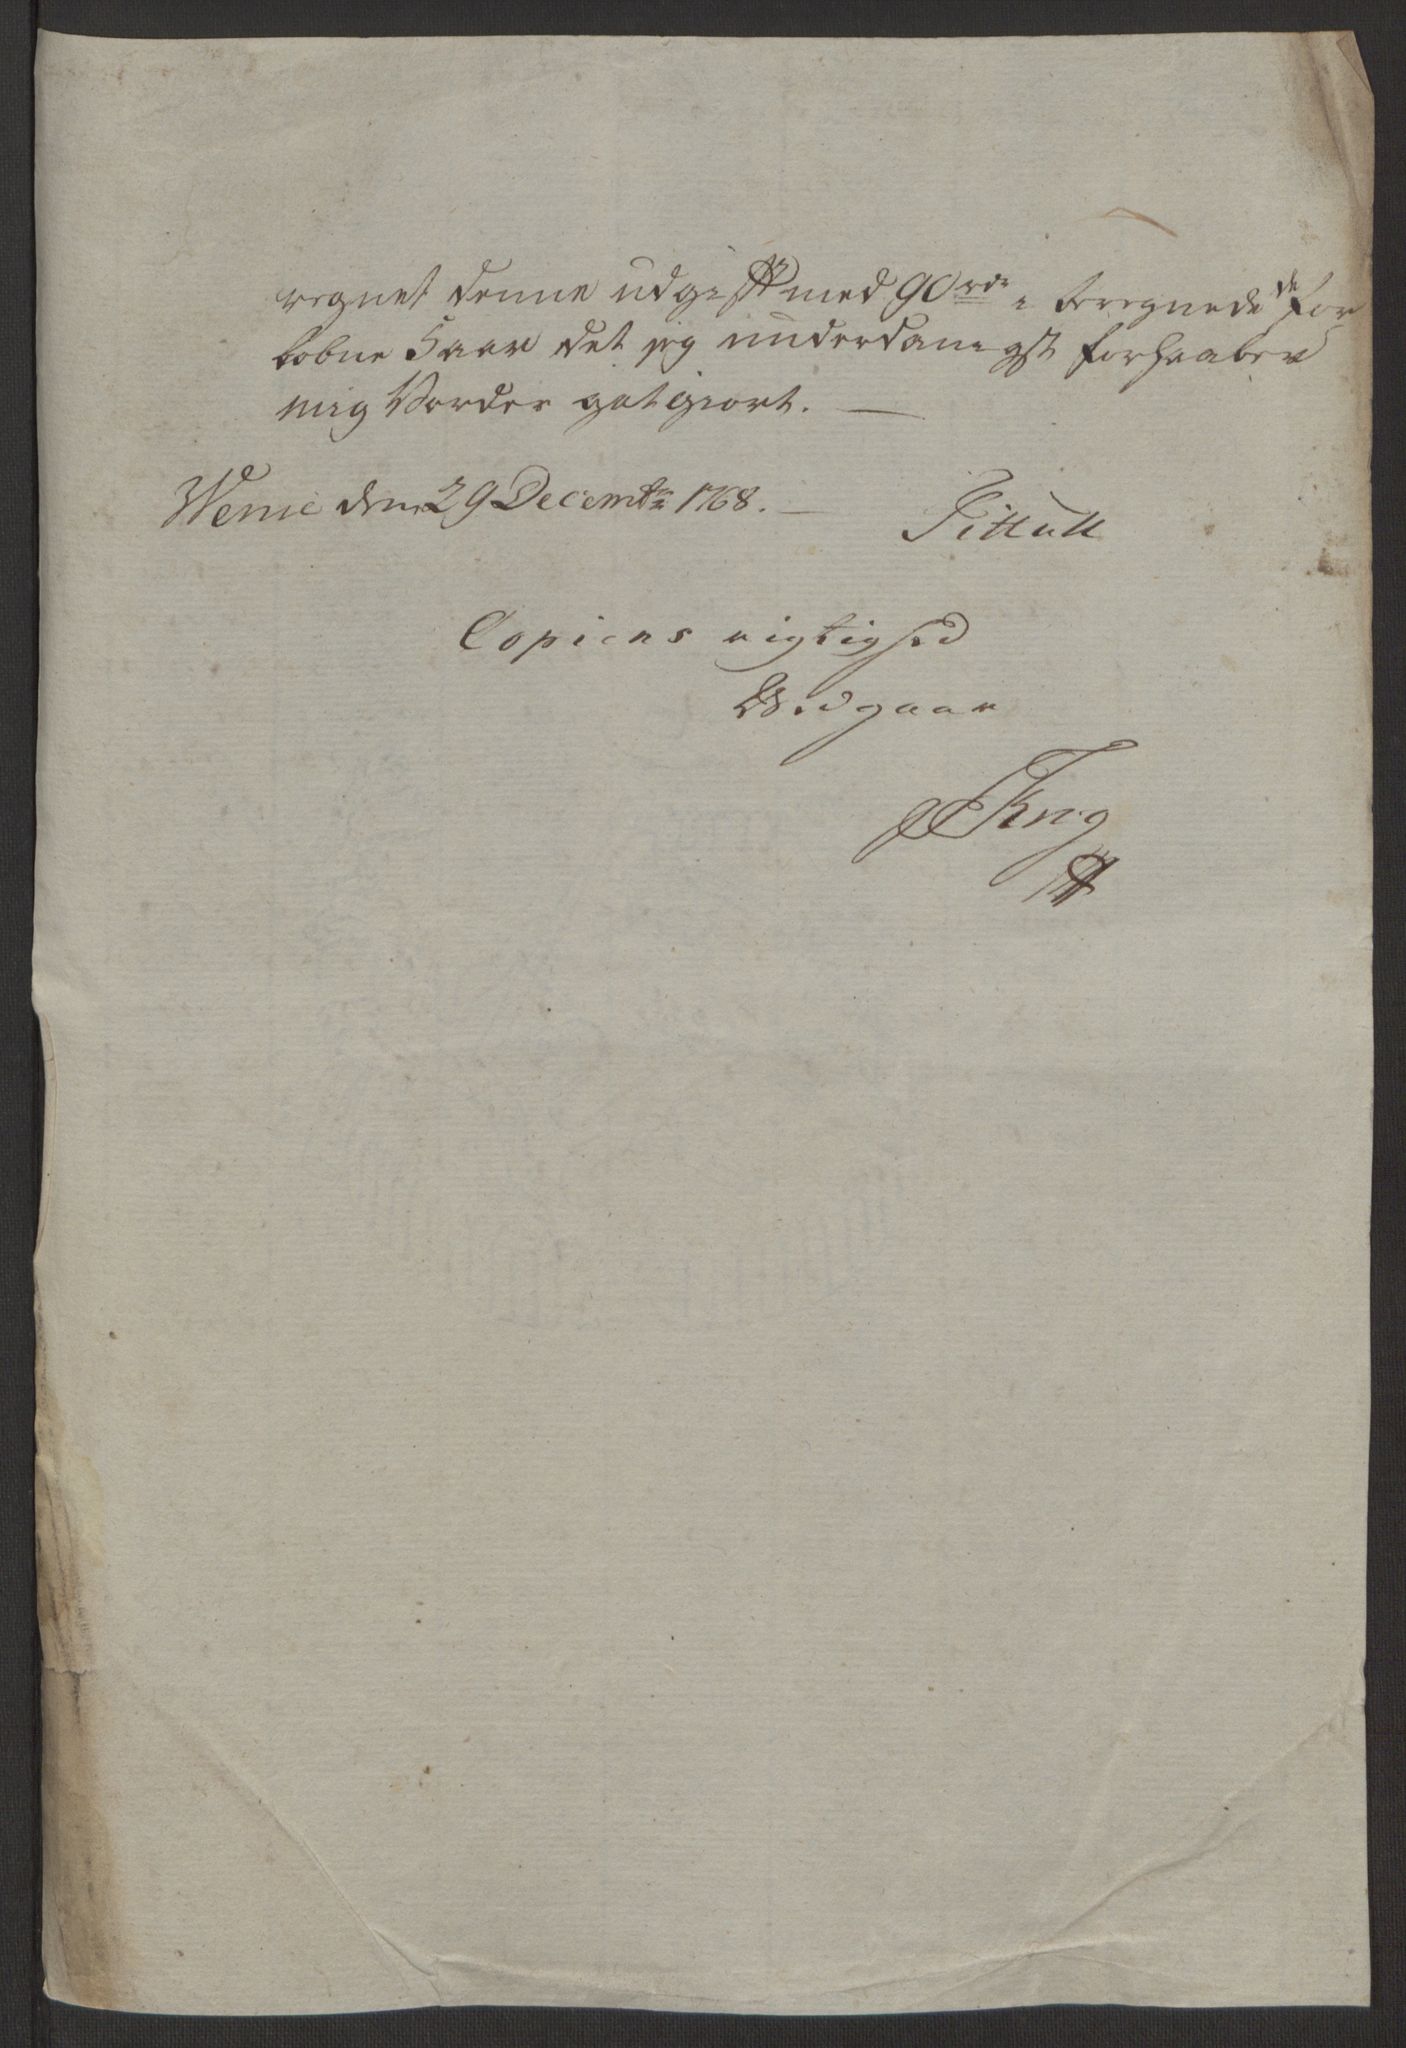 regnet denne udgift med 90 rdr i beregnede de for
løbne 5 aar det jeg underdanigst forhaaber
mig Vorder gotgiort. —
den 29 Decembr 1768. —
Tittull
Copiens rigtighed
Vedgaar